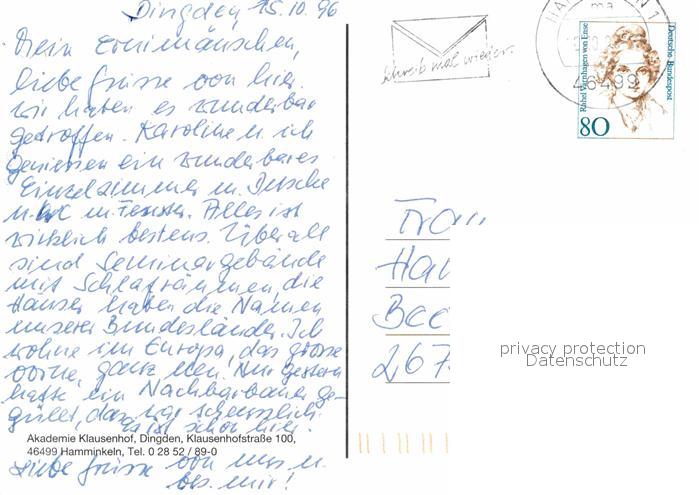 Dingden, 15.10.96
Mein Ernimäuschen,
liebe Grüsse von hier.
wir haben es wunderbar
getroffen. Karoline u. ich
geniessen ein wunderbares
Einzelzimmer m. Dusche
u. WC m. Fenster. Alles ist
wirklich bestens. Überall
sind Seminargebäude
mit Schlafräumen, die
Häuser haben die Namen
unserer Bundesländer. Ich
wohne im Europa, das grosse
vorne, ganz neu. Nur gestern
hatte ein Nachbarbauer ge-
güllet, das war scheusslich.
es ist schön hier.
Akademie Klausenhof, Dingden, Klausenhofstraße 100,
46499 Hamminkeln, Tel. 0 28 52 / 89-0
Liebe Grüsse von uns u.
bes. mir!
Schreib mal wieder.
46499
Rahel Varnhagen von Ense
Deutsche Bundespost
80
Frau
Har
Bee
267
privacy protection
Datenschutz